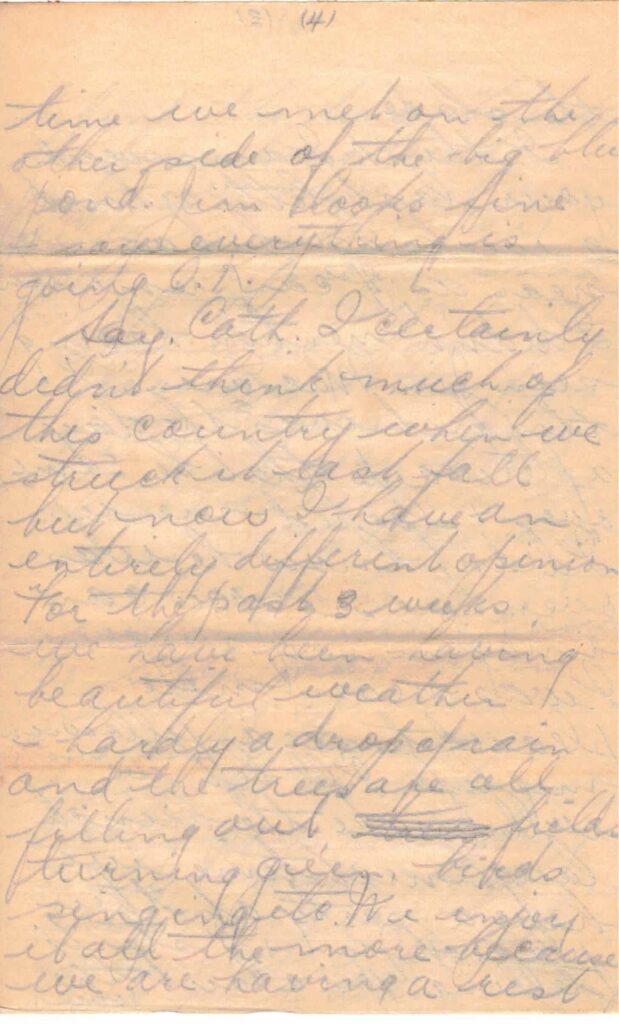 (4)
time we met on the
other side of the big blue
pond. Jim looks fine
& says everything is
going O.K.
Say. Cath. I certainly
didn't think much of
this country when we
struck it last fall
but now I have an
entirely different opinion
For the past 3 weeks
we have been having
beautiful weather
- hardly a drop of rain
and the trees are all
filling out, fields
turning green, birds
singing etc. We enjoy
it all the more because
we are having a rest